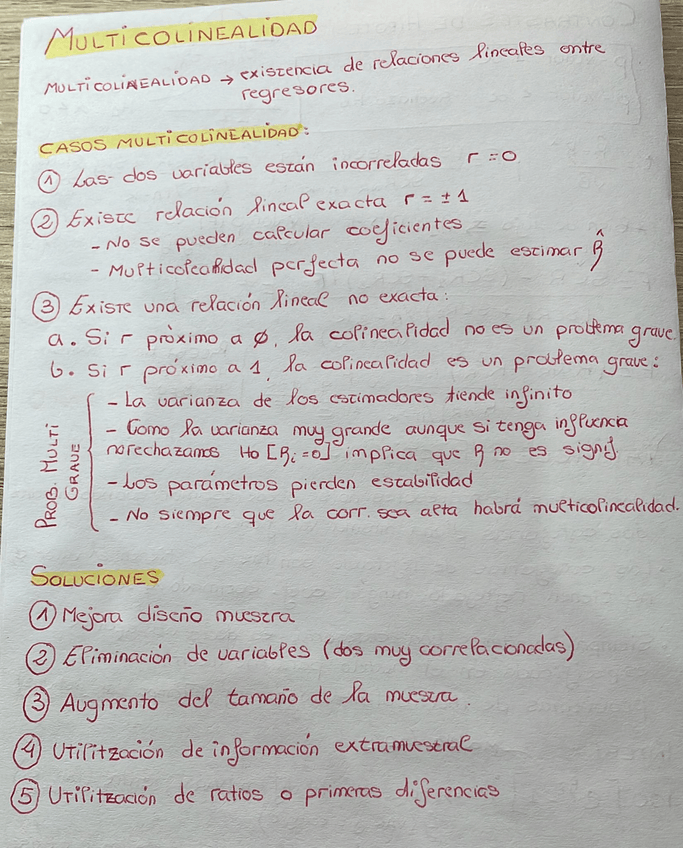 MULTICOLINEALIDAD
MULTICOLINEALIDAD → existencia de relaciones lineales entre
regresores.
CASOS MULTICOLINEALIDAD:
① Las dos variables están incorreladas r = 0
② Existe relación lineal exacta r = ± 1
- No se pueden calcular coeficientes
- Multicolealidad perfecta no se puede estimar β̂
③ Existe una relación lineal no exacta:
a. Si r próximo a ∅, la colinealidad no es un problema grave.
b. Si r próximo a 1, la colinealidad es un problema grave:
PROB. MULTI
GRAVE
- La varianza de los estimadores tiende infinito
- Como la varianza muy grande aunque si tenga influencia
no rechazamos Ho [βi = 0] implica que β no es signif.
- Los parámetros pierden estabilidad
- No siempre que la corr. sea alta habrá multicolinealidad.
SOLUCIONES
① Mejora diseño muestra
② Eliminación de variables (dos muy correlacionadas)
③ Augmento del tamaño de la muestra.
④ Utilització́n de información extramuestral
⑤ Utilitzación de ratios o primeras diferencias